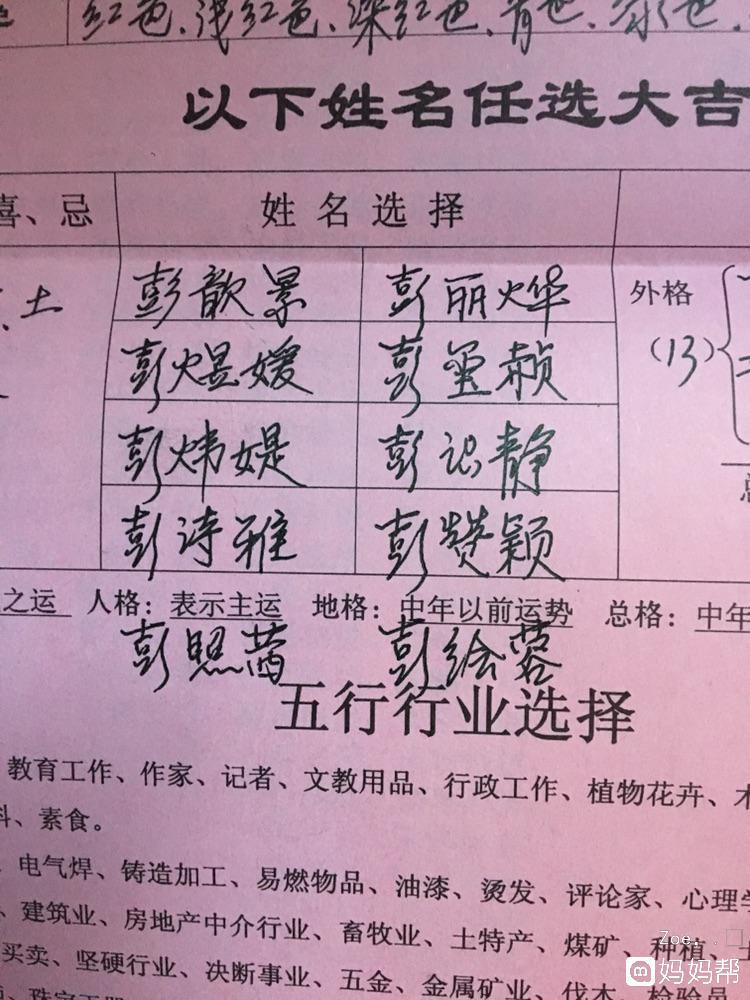 红色、浅红色、深红色、青色、绿色.
以下姓名任选大吉
喜、忌 姓名选择
土 彭歆景 彭丽烨 外格
彭煜媛 彭玺赪 (13)
彭炜媞 彭识静
彭诗雅 彭赞颖
之运 人格：表示主运 地格：中年以前运势 总格：中年
彭照茜 彭绘蓉
五行行业选择
教育工作、作家、记者、文教用品、行政工作、植物花卉、木
料、素食。
、电气焊、铸造加工、易燃物品、油漆、烫发、评论家、心理学
、建筑业、房地产中介行业、畜牧业、土特产、煤矿、种植、
买卖、坚硬行业、决断事业、五金、金属矿业、伐木、检验员
Zoe.
妈妈帮